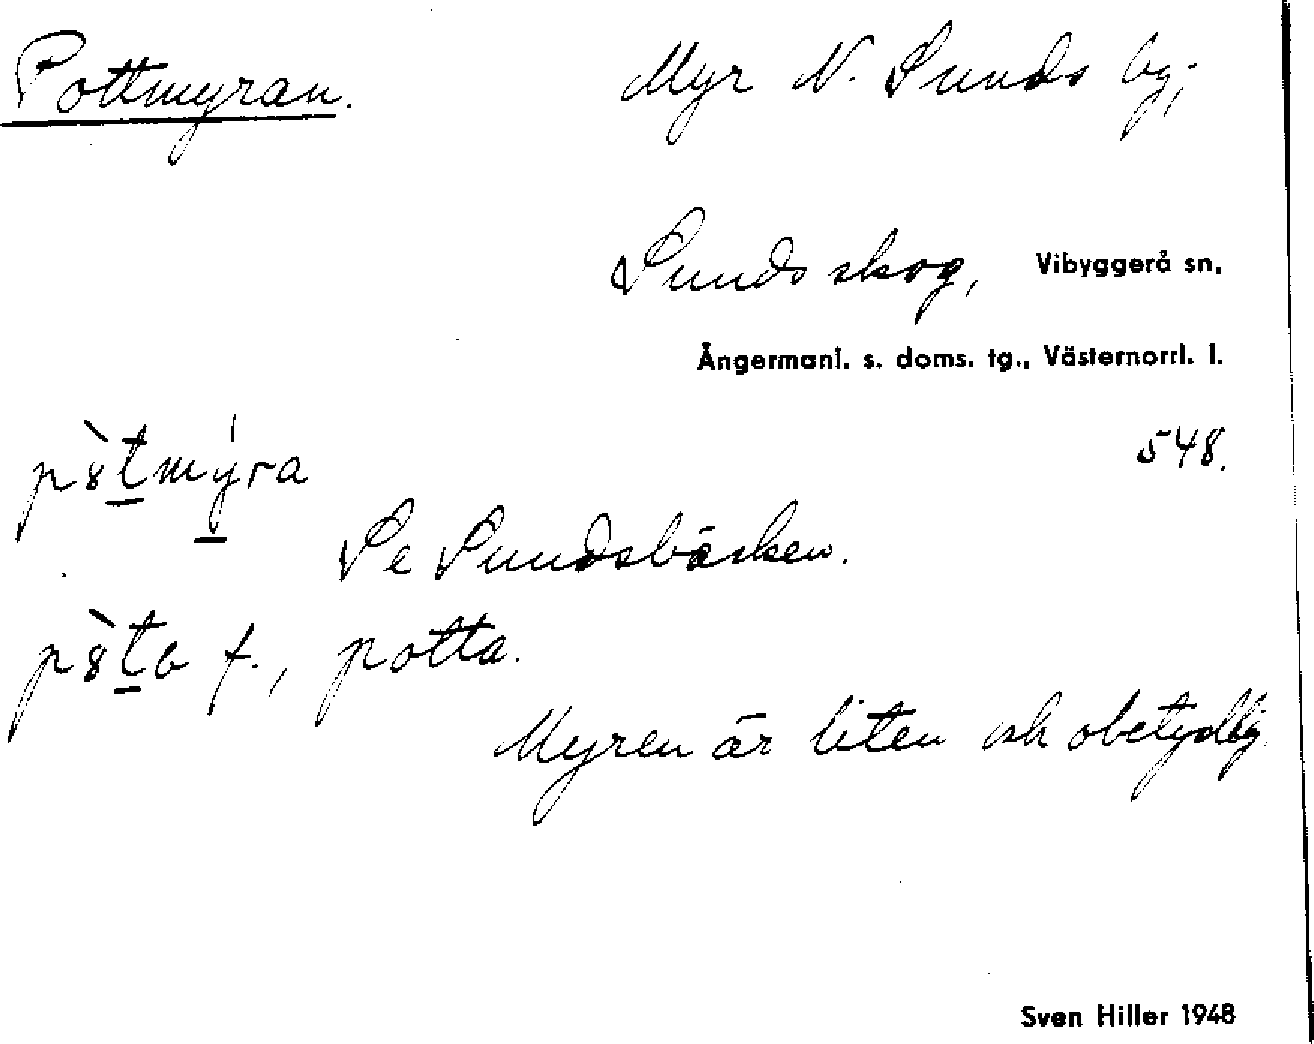 Pottmyran. Myr N. Sunds by;
Sunds skog, Vibyggerå sn,
Ångermanl. s. doms. tg., Västernorrl. l.
548.
pὸ̱tmýra
Se Sundsbäcken.
f., potta.
Myren är liten och obetydlig.
Sven Hiller 1948